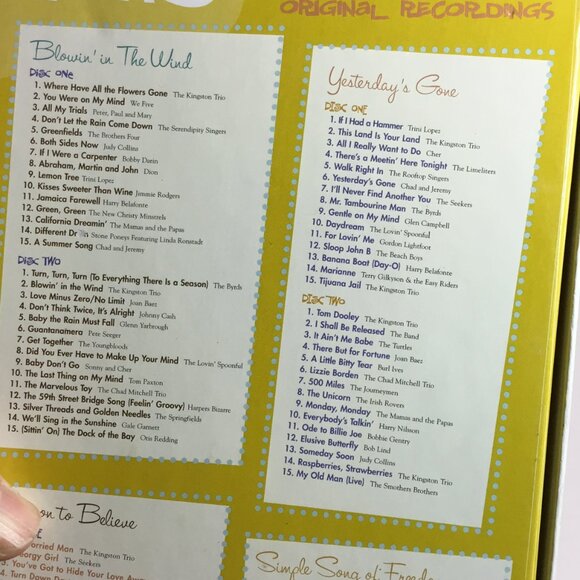 ORIGINAL RECORDINGS
Blowin' in The Wind
DISC ONE
1. Where Have All the Flowers Gone The Kingston Trio
2. You Were on My Mind We Five
3. All My Trials Peter, Paul and Mary
4. Don't Let the Rain Come Down The Serendipity Singers
5. Greenfields The Brothers Four
6. Both Sides Now Judy Collins
7. If I Were a Carpenter Bobby Darin
8. Abraham, Martin and John Dion
9. Lemon Tree Trini Lopez
10. Kisses Sweeter Than Wine Jimmie Rodgers
11. Jamaica Farewell Harry Belafonte
12. Green, Green The New Christy Minstrels
13. California Dreamin' The Mamas and the Papas
14. Different Dr The Stone Poneys Featuring Linda Ronstadt
15. A Summer Song Chad and Jeremy
DISC TWO
1. Turn, Turn, Turn (To Everything There Is a Season) The Byrds
2. Blowin' in the Wind The Kingston Trio
3. Love Minus Zero/No Limit Joan Baez
4. Don't Think Twice, It's Alright Johnny Cash
5. Baby the Rain Must Fall Glenn Yarbrough
6. Guantanamera Pete Seeger
7. Get Together The Youngbloods
8. Did You Ever Have to Make Up Your Mind The Lovin' Spoonful
9. Baby Don't Go Sonny and Cher
10. The Last Thing on My Mind Tom Paxton
11. The Marvelous Toy The Chad Mitchell Trio
12. The 59th Street Bridge Song (Feelin' Groovy) Harpers Bizarre
13. Silver Threads and Golden Needles The Springfields
14. We'll Sing in the Sunshine Gale Garnett
15. (Sittin' On) The Dock of the Bay Otis Redding
Yesterday's Gone
DISC ONE
1. If I Had a Hammer Trini Lopez
2. This Land Is Your Land The Kingston Trio
3. All I Really Want to Do Cher
4. There's a Meetin' Here Tonight The Limeliters
5. Walk Right In The Rooftop Singers
6. Yesterday's Gone Chad and Jeremy
7. I'll Never Find Another You The Seekers
8. Mr. Tambourine Man The Byrds
9. Gentle on My Mind Glen Campbell
10. Daydream The Lovin' Spoonful
11. For Lovin' Me Gordon Lightfoot
12. Sloop John B The Beach Boys
13. Banana Boat (Day-O) Harry Belafonte
14. Marianne Terry Gilkyson & the Easy Riders
15. Tijuana Jail The Kingston Trio
DISC TWO
1. Tom Dooley The Kingston Trio
2. I Shall Be Released The Band
3. It Ain't Me Babe The Turtles
4. There But for Fortune Joan Baez
5. A Little Bitty Tear Burl Ives
6. Lizzie Borden The Chad Mitchell Trio
7. 500 Miles The Journeymen
8. The Unicorn The Irish Rovers
9. Monday, Monday The Mamas and the Papas
10. Everybody's Talkin' Harry Nilsson
11. Ode to Billie Joe Bobbie Gentry
12. Elusive Butterfly Bob Lind
13. Someday Soon Judy Collins
14. Raspberries, Strawberries The Kingston Trio
15. My Old Man (Live) The Smothers Brothers
on to Believe
orried Man The Kingston Trio
eorgy Girl The Seekers
3. You've Got to Hide Your Love
4. Turn Down
Simple Song of Freedo